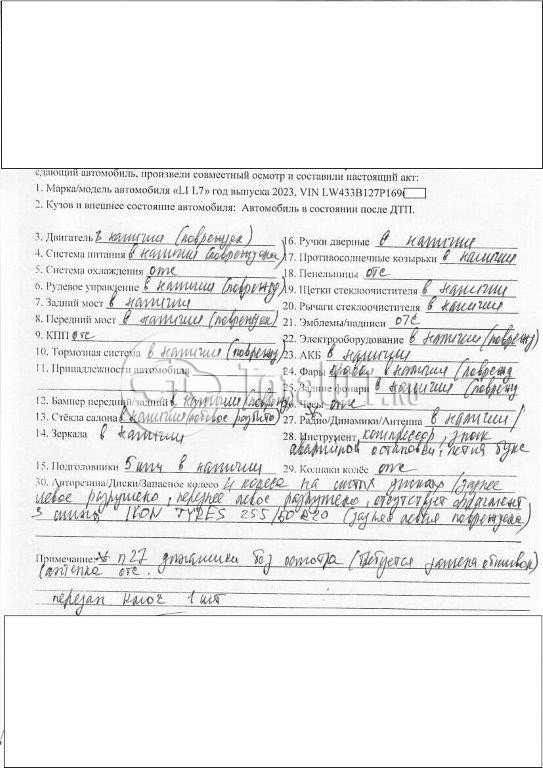 сдающий автомобиль, произвели совместный осмотр и составили настоящий акт:
1. Марка/модель автомобиля «LI L7» год выпуска 2023, VIN LW433B127P169
2. Кузов и внешнее состояние автомобиля: Автомобиль в состоянии после ДТП.
3. Двигатель в наличии (поврежден)
4. Система питания в наличии (повреждена)
5. Система охлаждения отс
6. Рулевое управление в наличии (поврежд)
7. Задний мост в наличии
8. Передний мост в наличии (поврежден)
9. КПП отс
10. Тормозная система в наличии (поврежд)
11. Принадлежности автомобиля
12. Бампер передний/задний в наличии (поврежд
13. Стёкла салона в наличии (лобовое разбито)
14. Зеркала в наличии
15. Подголовники 5 шт в наличии
16. Ручки дверные в наличии
17. Противосолнечные козырьки в наличии
18. Пепельницы отс
19. Щетки стеклоочистителя в наличии
20. Рычаги стеклоочистителя в наличии
21. Эмблемы/надписи отс
22. Электрооборудование в наличии (поврежд)
23. АКБ в наличии
24. Фары правая в наличии (поврежд
25. Задние фонари в наличии (поврежд
26. Часы отс
27. Радио/Динамики/Антенна в наличии/
28. Инструмент компрессор, знак
аварийной остановки, петля букс
29. Колпаки колёс отс
30. Авторезина/Диски/Запасное колесо 4 колеса на литых дисках (заднее
левое разрушено, переднее левое разрушено, отсутствует фрагмент
3 шины IKON TYRES 255/50 R20 (задняя левая повреждена)
Примечание: п 27 динамики без осмотра (требуется снятие обшивок)
(антенна отс.
передан ключ 1 шт